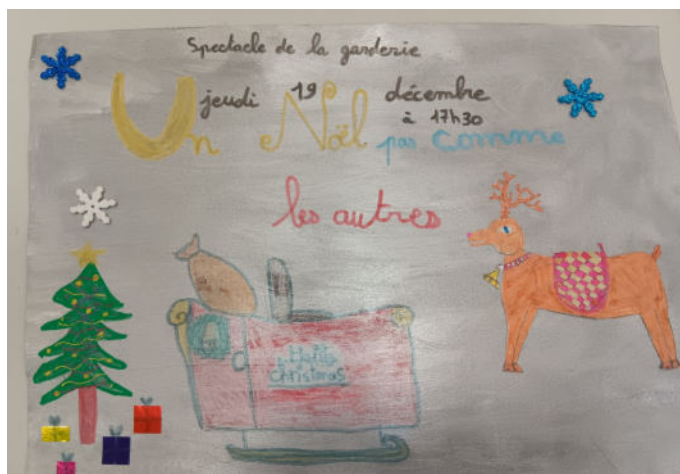 Spectacle de la garderie
jeudi 19 décembre
à 17h30
Un Noël pas comme
les autres
Christmas